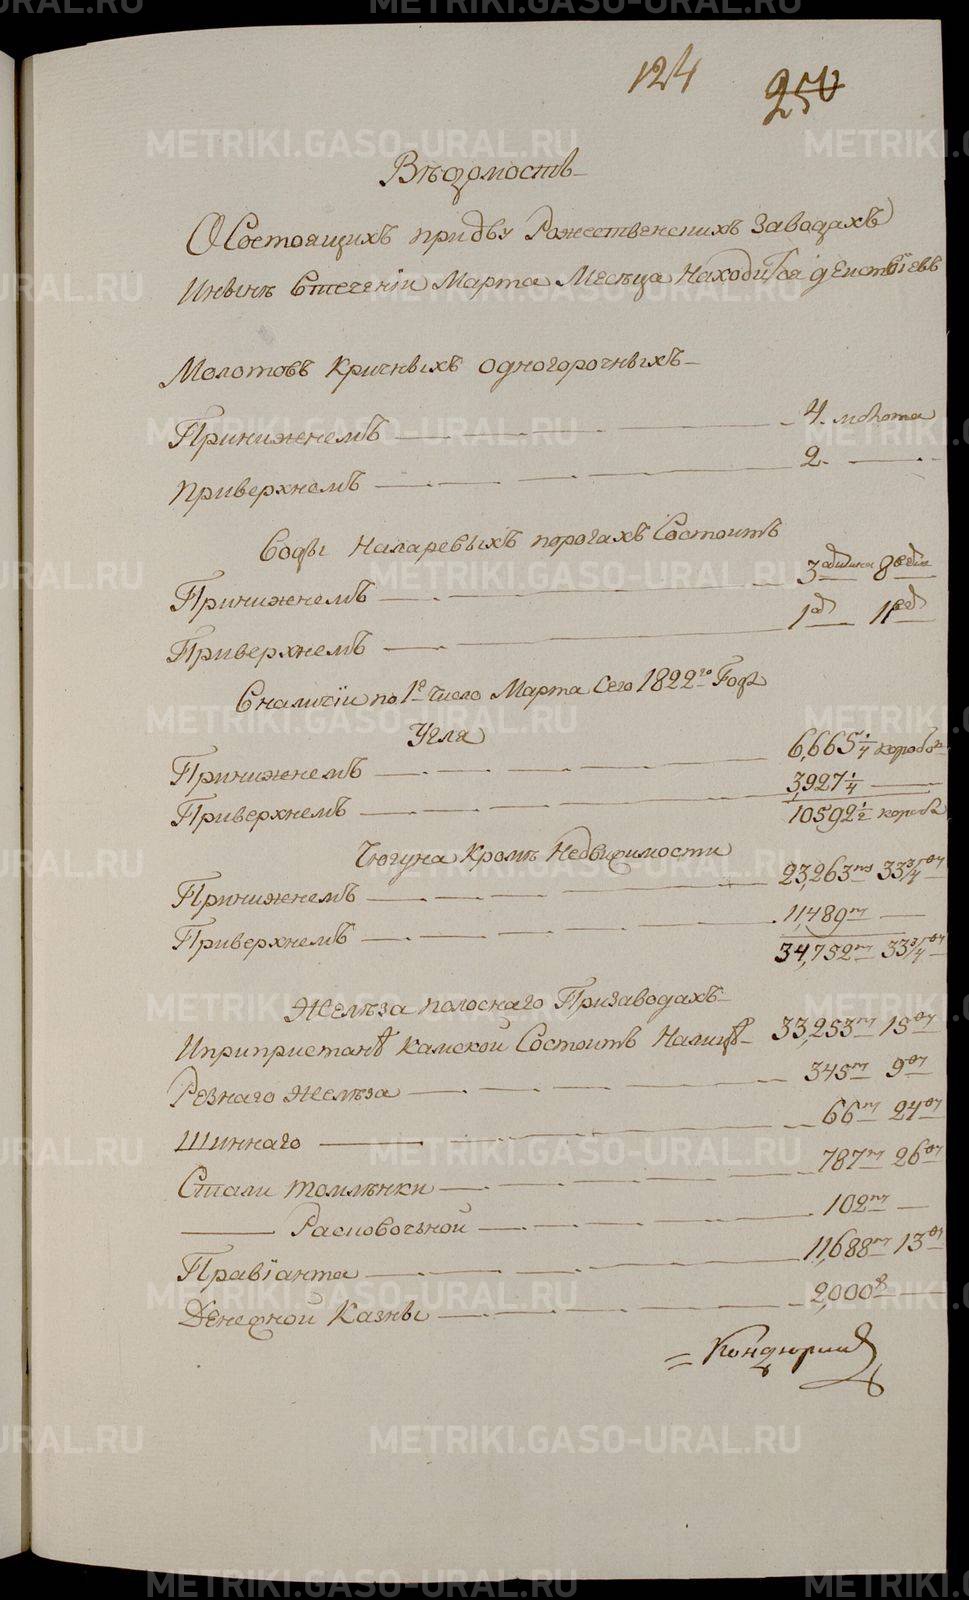 124 250
Вѣдомость
О Состоящихъ придву Рожественскихъ Заводахъ
Инынѣ Стеченiи Марта Месѣца Находится деиствiевъ
Молотовъ Кричныхъ одногорочныхъ
Принижнемъ 4. молота
Приверхнемъ 2.
Воды Наларевыхъ порогахъ Состоитъ
Принижнемъ 3 аршина 8
Приверхнемъ 1 11
Сналичiи по 1е число Марта Сего 1822го Года
Угля
Принижнемъ 6,665 1/4 короба
Приверхнемъ 3,927 1/4
10592 1/2 короба
Чюгуна Кромѣ Недвижимости
Принижнемъ 23,263 п 33 3/4 фу
Приверхнемъ 11,489 п
34,752 п 33 3/4 фу
Желѣза полоснаго Призаводахъ
Ипрпристанѣ Камской Состоитъ Налицо 33,253 п 15 фу
Резнаго Желѣза 345 п 9 фу
Шиннаго 66 п 24 фу
Стали томлѣнки 787 п 26 фу
Расковочной 102 п
Правiанта 11,688 п 13 фу
Денежной Казны 2,000 р
Кондюрин
METRIKI.GASO-URAL.RU